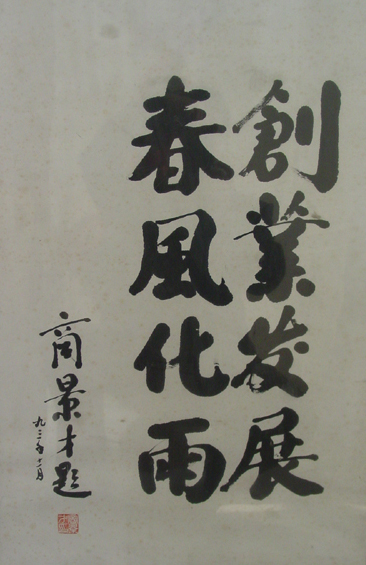 創業发展
春風化雨
商景才題
九二年十一月